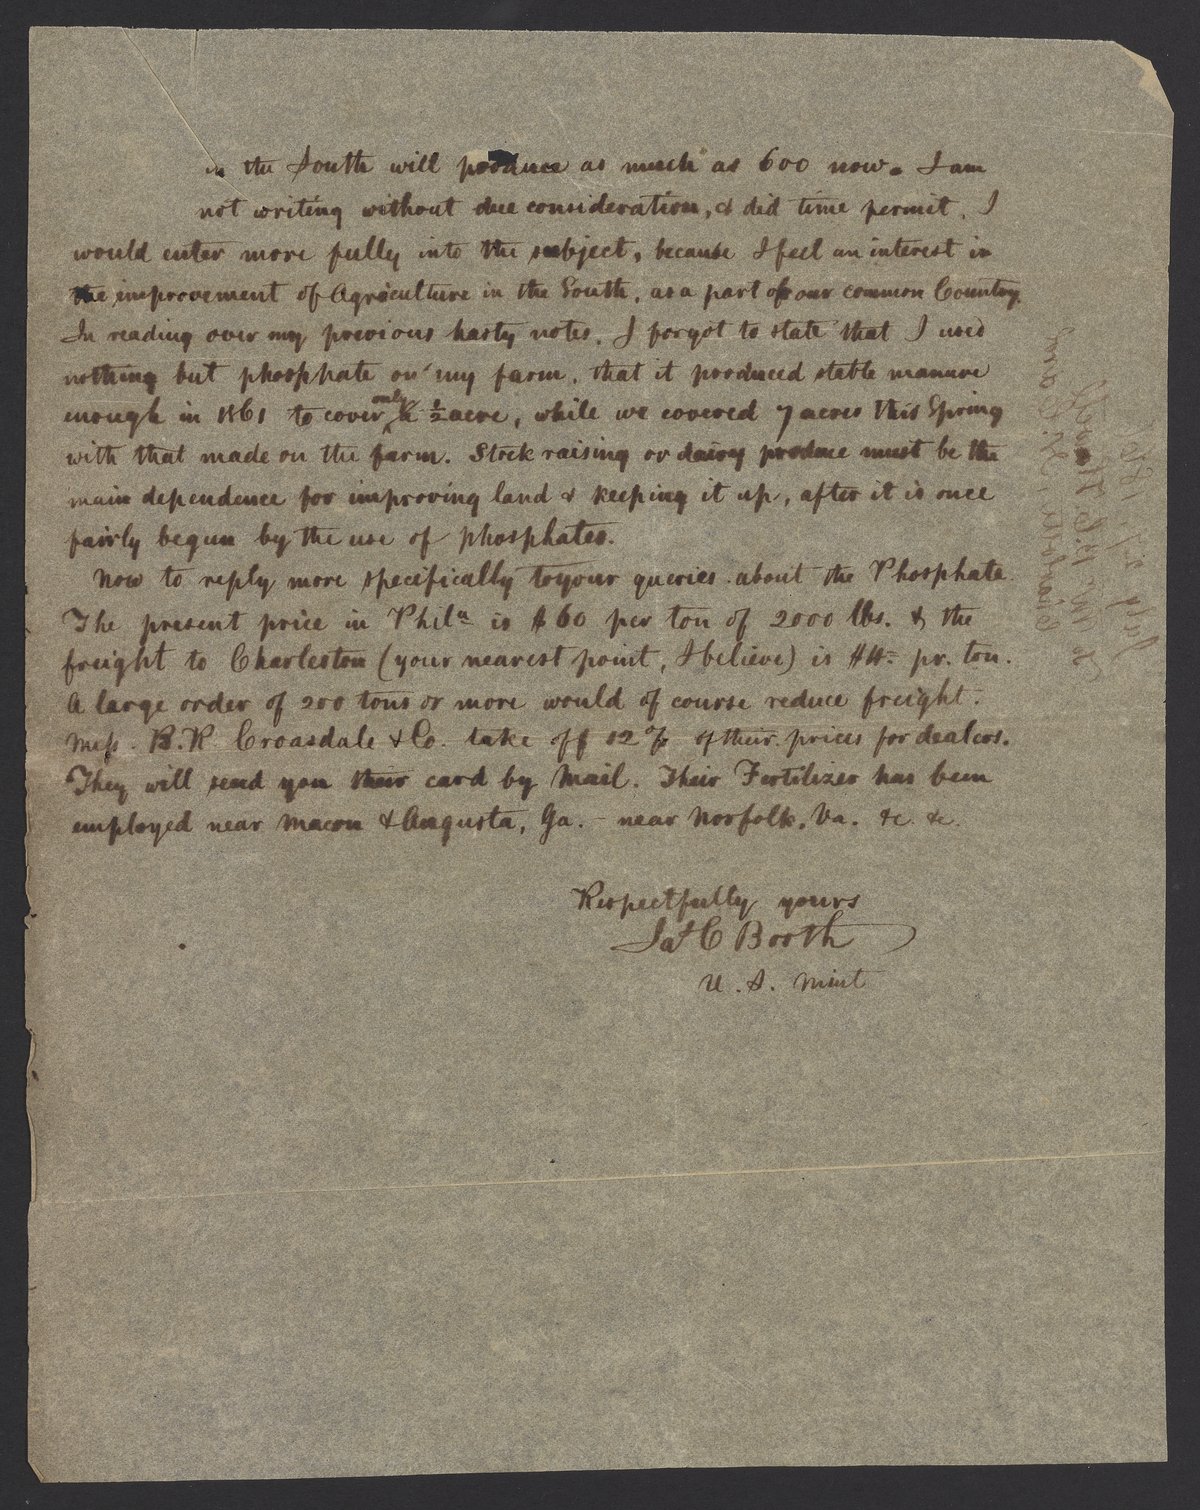 in the South will produce as much as 600 now. I am
not writing without due consideration, & did time permit, I
would enter more fully into the subject, because I feel an interest in
the improvement of Agriculture in the South, as a part of our common Country.
In reading over my previous hasty notes, I forgot to state that I used
nothing but phosphate on my farm, that it produced stable manure
only
enough in 1861 to cover a ½ acre, while we covered 7 acres this Spring
with that made on the farm. Stock raising or dairy produce must be the
main dependence for improving land & keeping it up, after it is once
fairly begun by the use of phosphates.
Now to reply more specifically to your queries about the Phosphate
The present price in Phila is $60 per ton of 2000 lbs. & the
freight to Charleston (your nearest point, I believe) is $4= pr. ton.
A large order of 200 tons or more would of course reduce freight.
Mess. B.R. Croasdale & Co. take off 12% of their prices for dealers.
They will send you their card by Mail. Their Fertilizer has been
employed near Macon & Augusta, Ga. - near Norfolk, Va. &c &c.
Respectfully yours
Jas C Booth
U. S. Mint